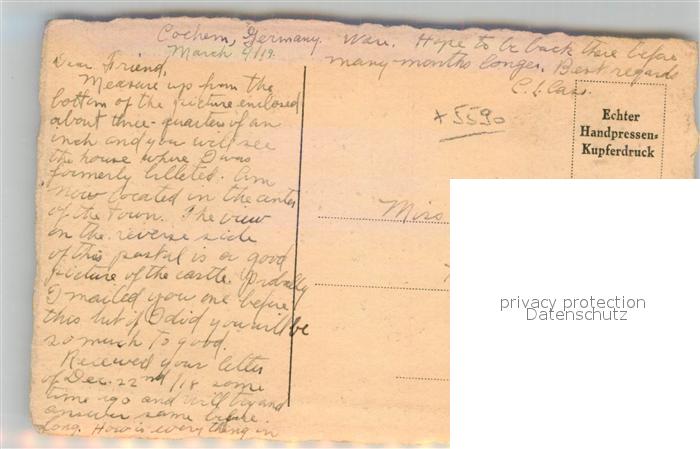 Cochem, Germany
March 4/19.
Dear Friend,
Measure up from the
bottom of the picture enclosed
about three-quarters of an
inch and you will see
the house where I was
formerly billeted. Am
now located in the center
of the town. The view
on the reverse side
of this postal is a good
picture of the castle. Probally
I mailed you one before
this but if I did you will be
so much to good.
Received your letter
of Dec. 22nd/18 some
time ago and will try and
answer same before
long. How is everything in
Ware. Hope to be back there before
many months longer. Best regards
C. L.
x 5590
Echter
Handpressen-
Kupferdruck
Miss
privacy protection
Datenschutz